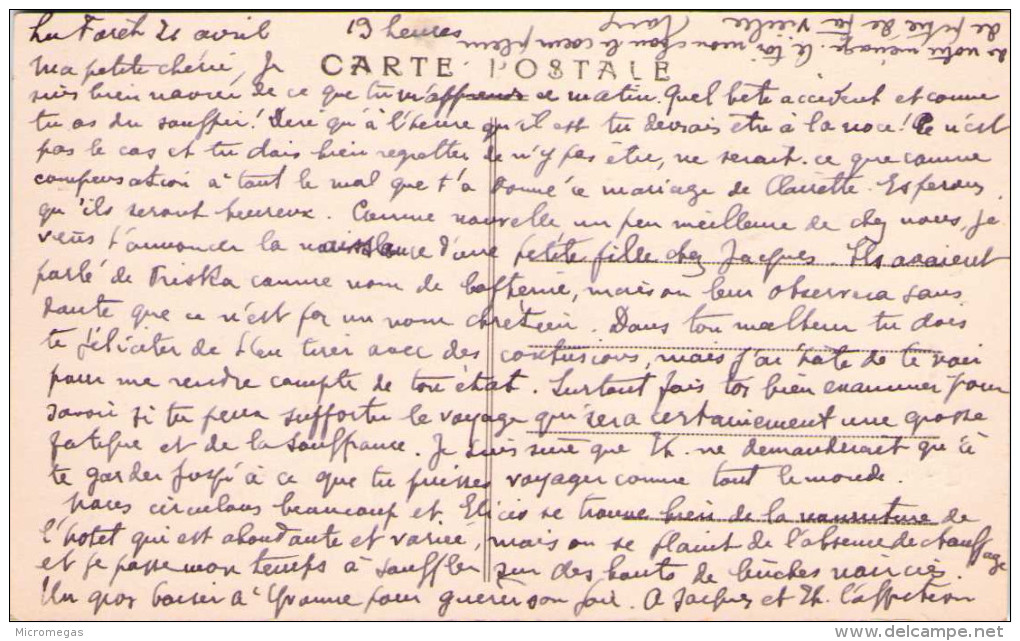 La Forêt 21 avril 19 heures
CARTE POSTALE
Ma petite chérie, Je
suis bien navrée de ce que tu m'apprends ce matin. Quel bête accident et comme
tu as dû souffrir! Dire qu'à l'heure qu'il est tu devrais être à la noce! Ce n'est
pas le cas et tu dois bien regretter de n'y pas être, ne serait-ce que comme
compensation à tout le mal que t'a donné ce mariage de Clairette. Espérons
qu'ils seront heureux. Comme nouvelle un peu meilleure de chez nous, je
viens t'annoncer la naissance d'une petite fille chez Jacques. Ils avaient
parlé de Priska comme nom de baptême, mais on leur observera sans
doute que ce n'est pas un nom chrétien. Dans ton malheur tu dois
te féliciter de t'en tirer avec des contusions, mais j'ai hâte de te voir
pour me rendre compte de ton état. Surtout fais toi bien examiner pour
savoir si tu peux supporter le voyage qui sera certainement une grosse
fatigue et de la souffrance. Je suis sûre que Th. ne demanderait qu'à
te garder jusqu'à ce que tu puisses voyager comme tout le monde.
circulons beaucoup et. Et ici on se trouve bien de la nourriture de
l'hotel qui est abondante et variée, mais on se plaint de l'absence de chauffage
et je passe mon temps à souffler sur des bouts de bûches noircies.
Un gros baiser à Yvonne pour guérir son foie. A Jacques et Th. l'affection
de votre ménage. A toi, mon chou, le cœur plein
de pitié de ta vieille